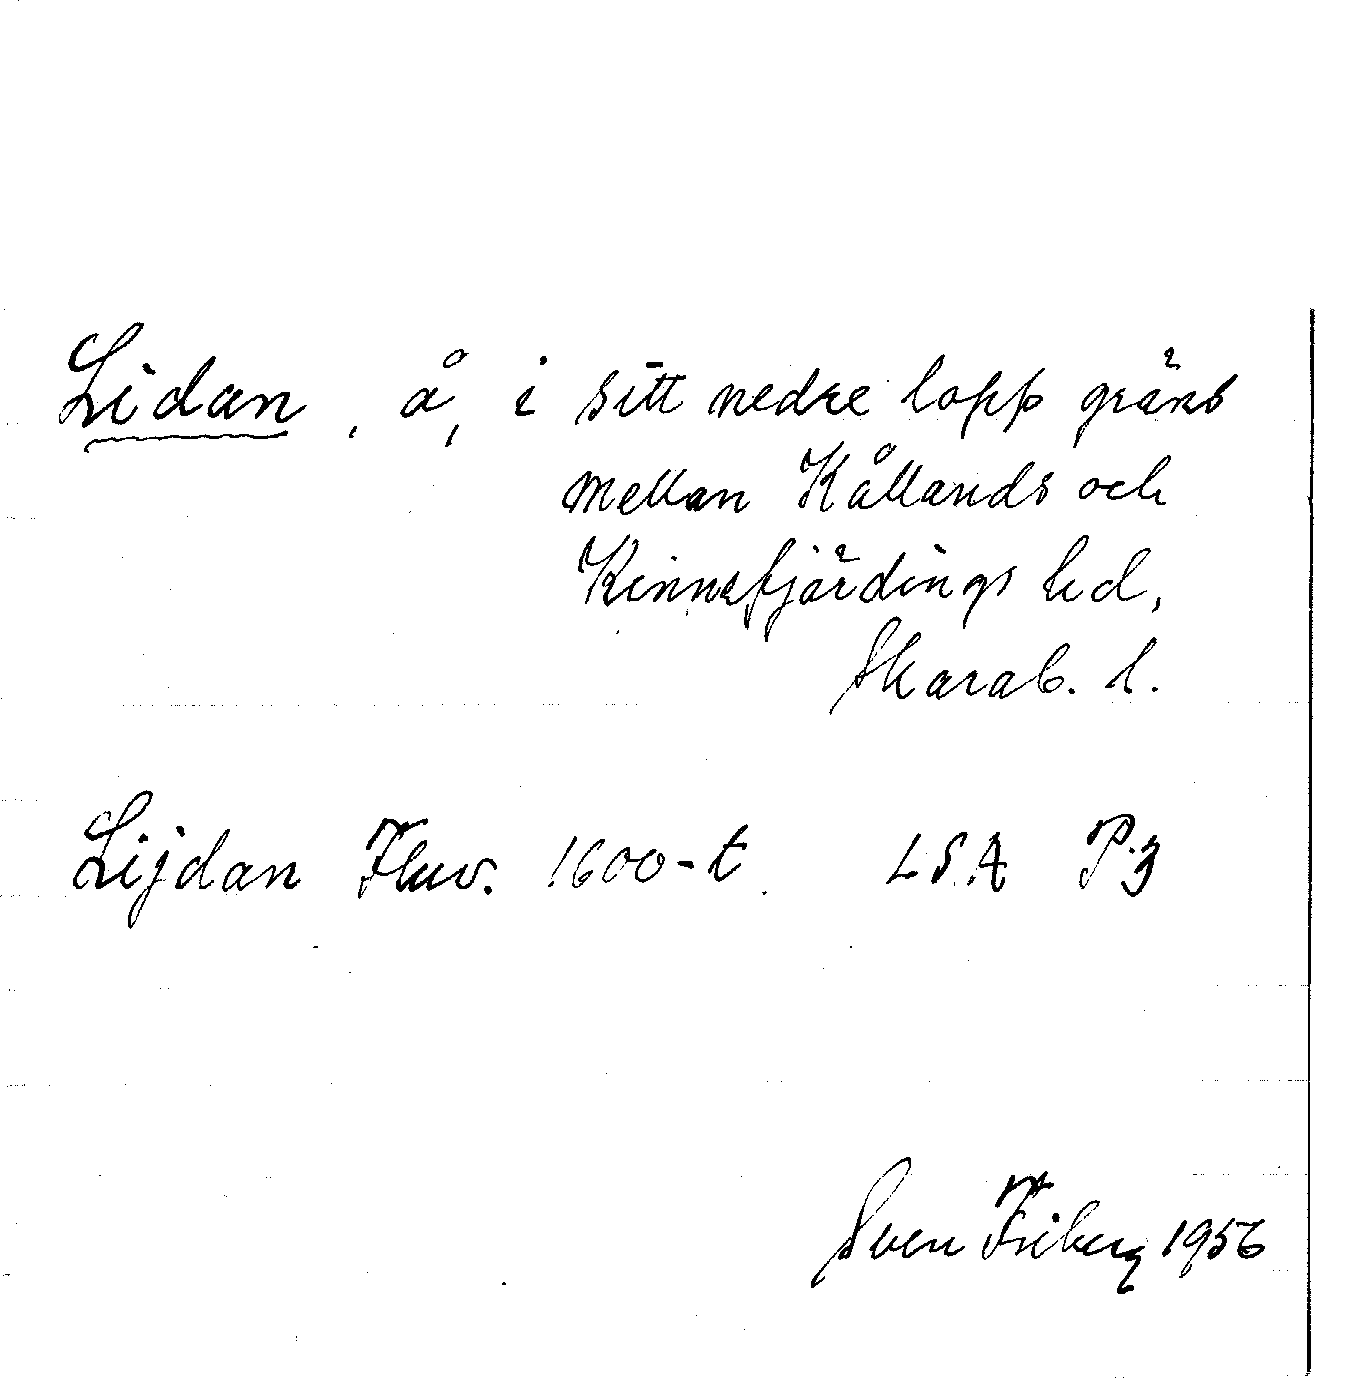 Lidan, å, i sitt nedre lopp gräns
mellan Kållands och
Kinnefjärdings hd,
Skarab. l.
Lijdan Fluv. 1600-t. LSA P:3
Sven Friberg 1956